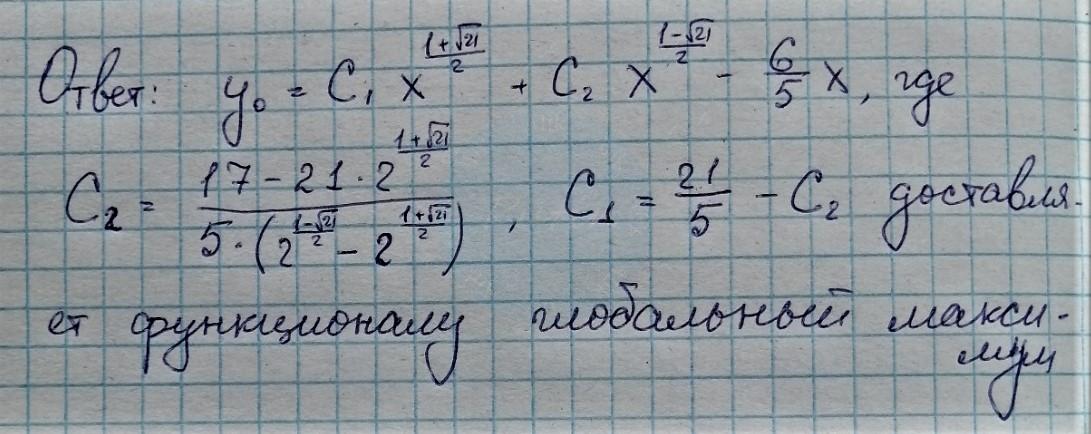 Ответ: y₀ = C₁ x^((1+√21)/2) + C₂ x^((1-√21)/2) - 6/5 x, где
C₂ = (17 - 21·2^((1+√21)/2)) / (5·(2^((1-√21)/2) - 2^((1+√21)/2))), C₁ = 21/5 - C₂ доставля-
ет функционалу глобальный макси-
мум